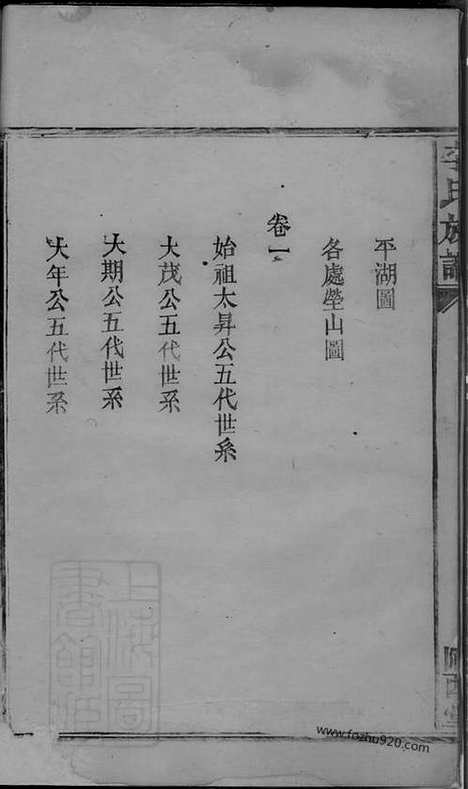 李氏族譜
隴西堂
平湖圖
各處塋山圖
卷一
始祖太昇公五代世系
大茂公五代世系
大期公五代世系
大年公五代世系
上海圖書館藏
www.fozhu920.com